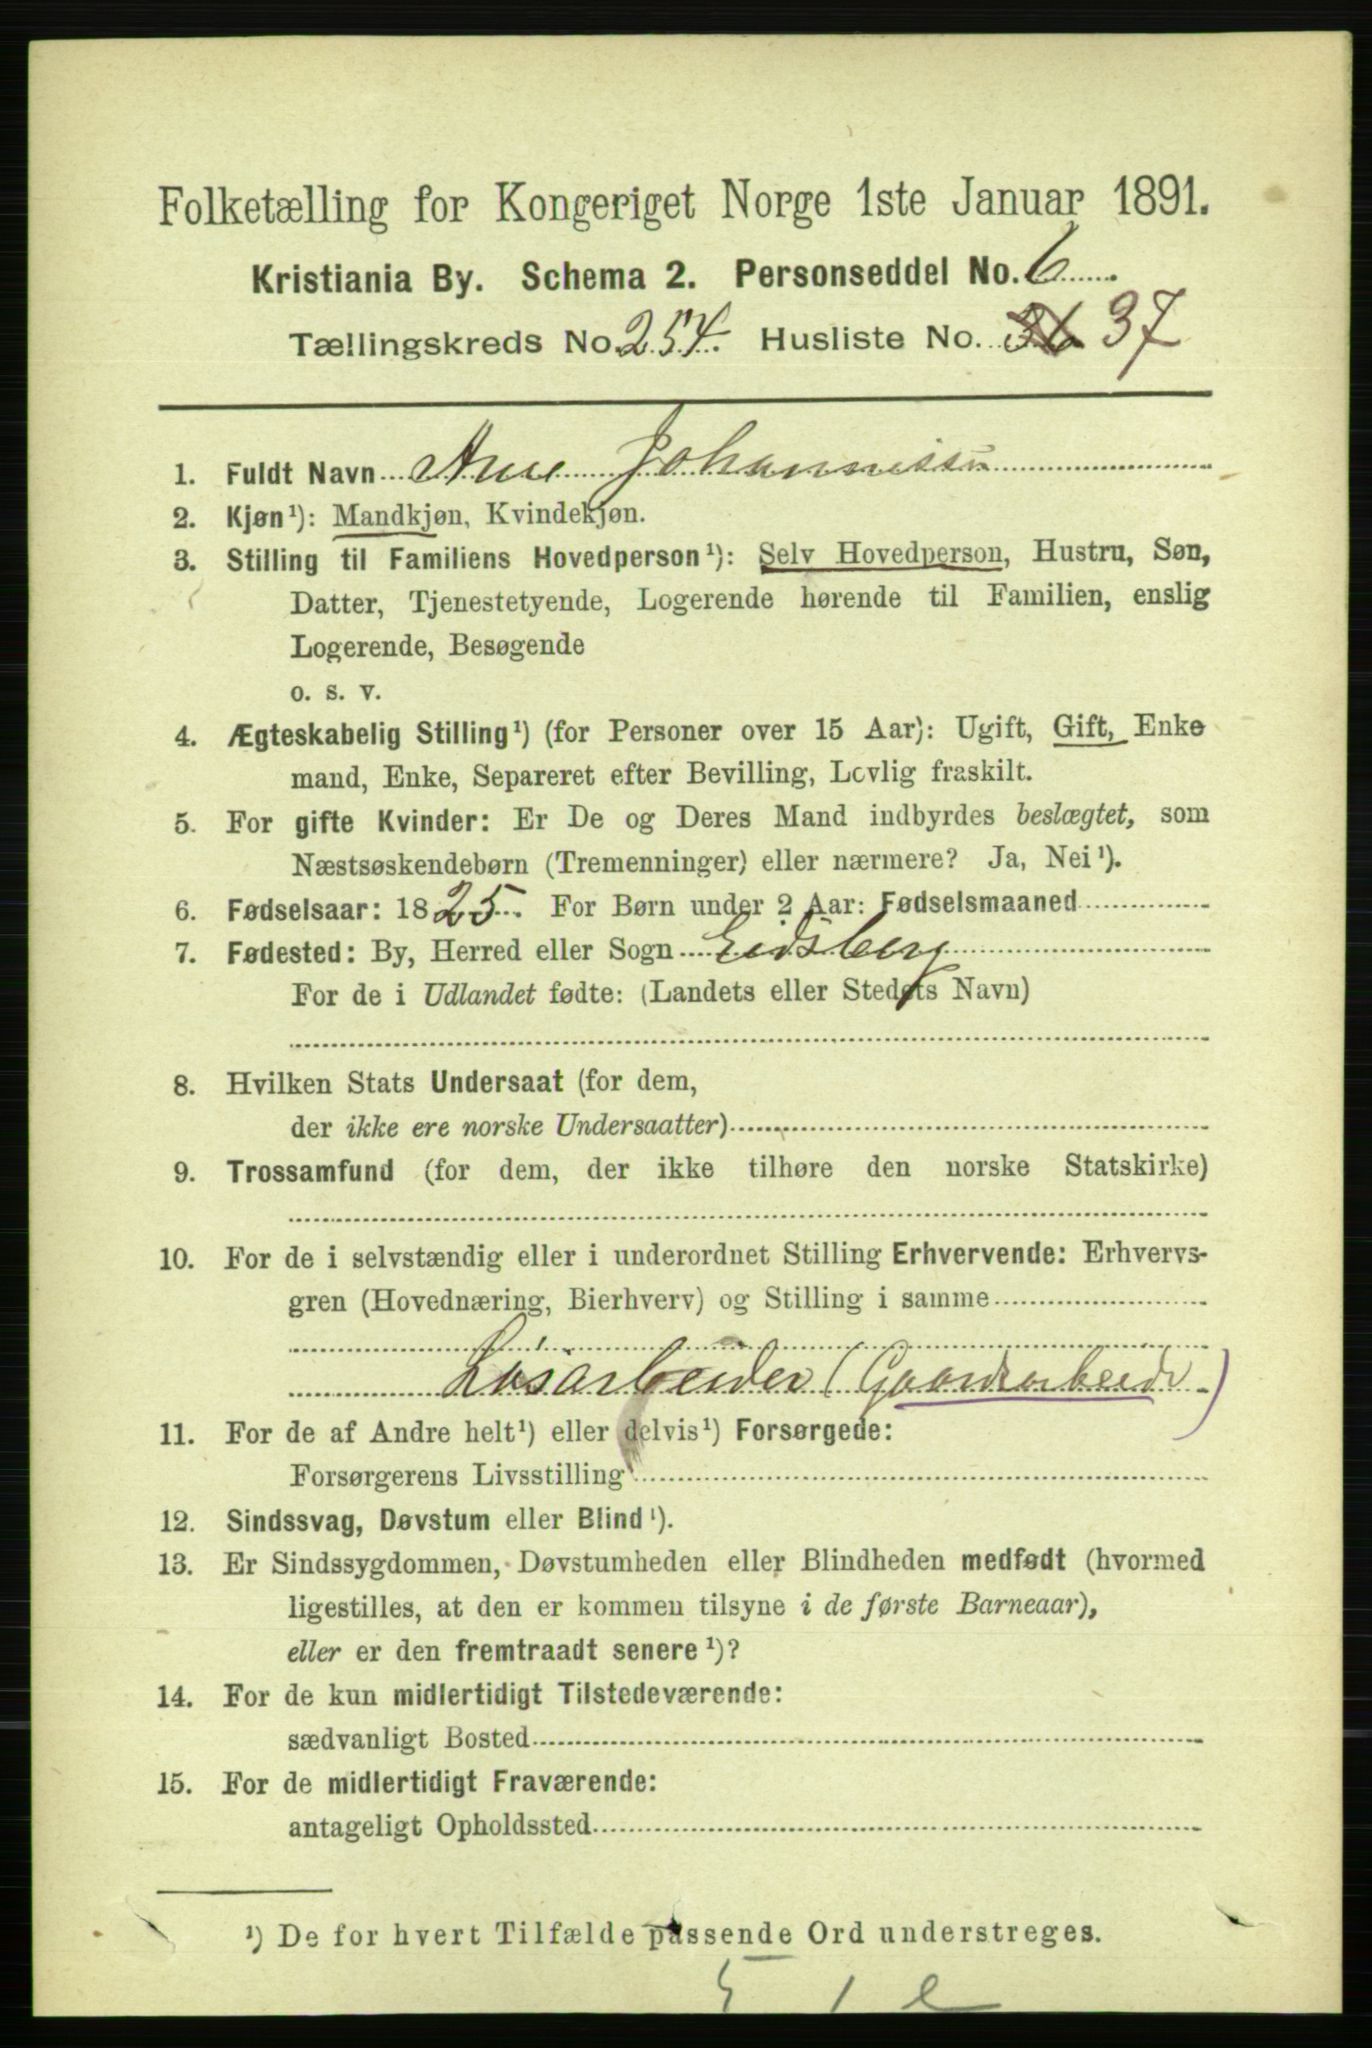 Folketælling for Kongeriget Norge 1ste Januar 1891.
Kristiania By. Schema 2. Personseddel No. 6
Tællingskreds No. 254. Husliste No. 36 37
1. Fuldt Navn Arne Johannissen
2. Kjøn¹): Mandkjøn, Kvindekjøn.
3. Stilling til Familiens Hovedperson¹): Selv Hovedperson, Hustru, Søn,
Datter, Tjenestetyende, Logerende hørende til Familien, enslig
Logerende, Besøgende
o. s. v.
4. Ægteskabelig Stilling¹) (for Personer over 15 Aar): Ugift, Gift, Enke
mand, Enke, Separeret efter Bevilling, Lovlig fraskilt.
5. For gifte Kvinder: Er De og Deres Mand indbyrdes beslægtet, som
Næstsøskendebørn (Tremenninger) eller nærmere? Ja, Nei¹).
6. Fødselsaar: 1825. For Børn under 2 Aar: Fødselsmaaned
7. Fødested: By, Herred eller Sogn Eidsberg
For de i Udlandet fødte: (Landets eller Stedets Navn)
8. Hvilken Stats Undersaat (for dem,
der ikke ere norske Undersaatter)
9. Trossamfund (for dem, der ikke tilhøre den norske Statskirke)
10. For de i selvstændig eller i underordnet Stilling Erhvervende: Erhvervs-
gren (Hovednæring, Bierhverv) og Stilling i samme
Løsarbeider (Gaardsarbeide)
11. For de af Andre helt¹) eller delvis¹) Forsørgede:
Forsørgerens Livsstilling
12. Sindssvag, Døvstum eller Blind¹).
13. Er Sindssygdommen, Døvstumheden eller Blindheden medfødt (hvormed
ligestilles, at den er kommen tilsyne i de første Barneaar),
eller er den fremtraadt senere¹)?
14. For de kun midlertidigt Tilstedeværende:
sædvanligt Bosted
15. For de midlertidigt Fraværende:
antageligt Opholdssted
¹) De for hvert Tilfælde passende Ord understreges.